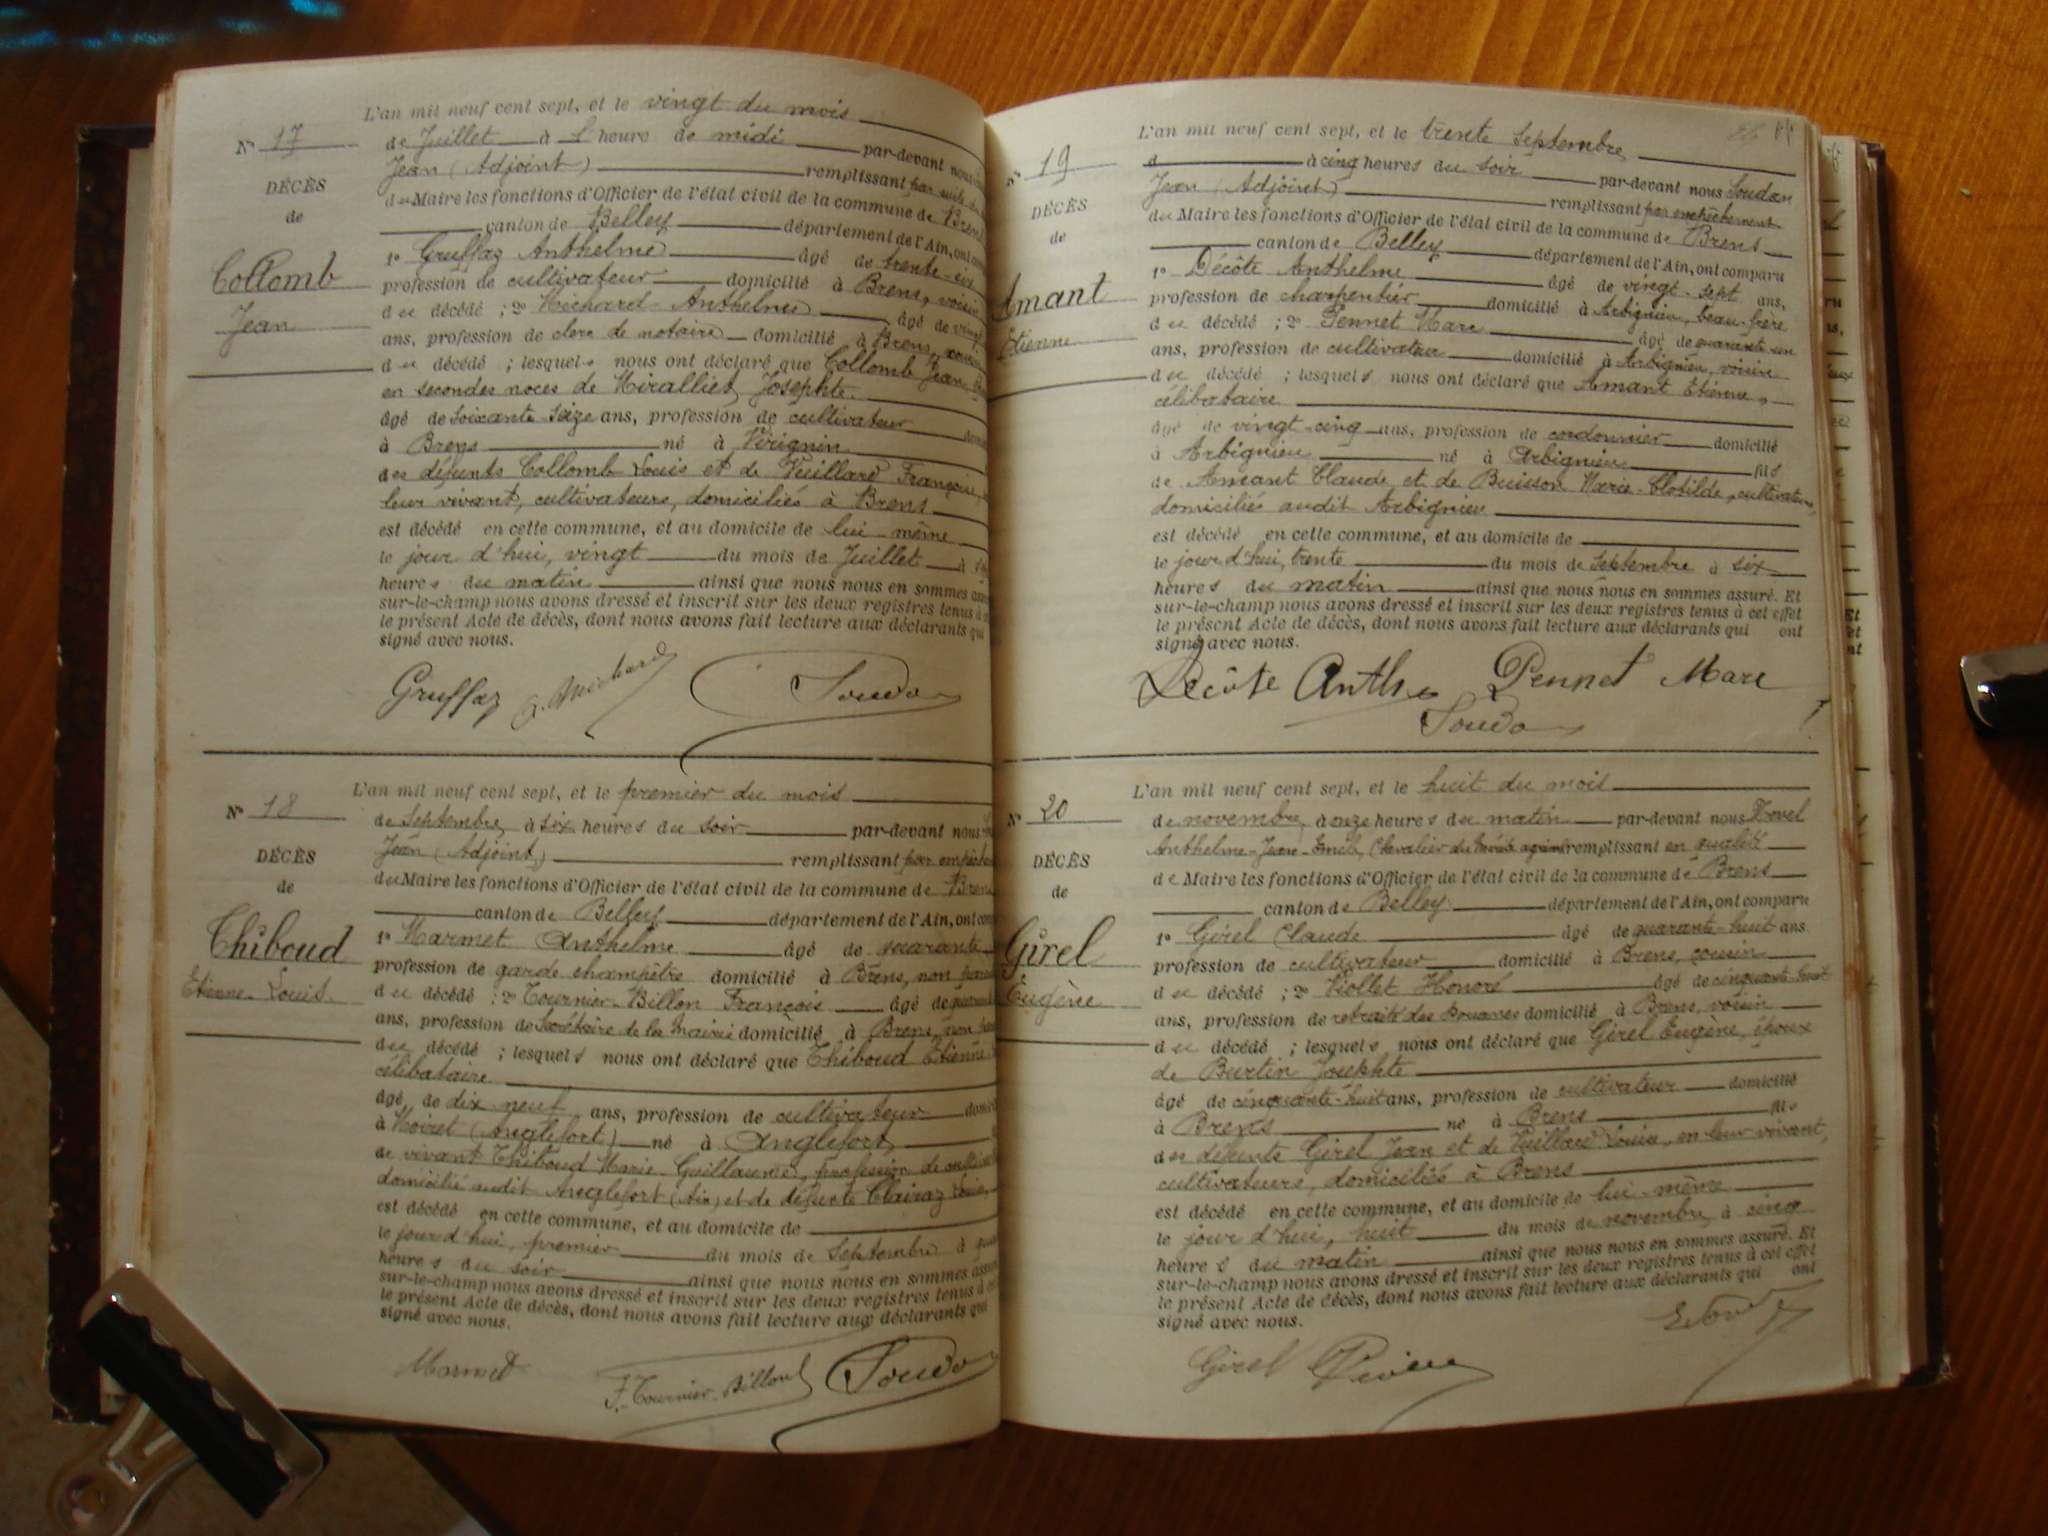 L'an mil neuf cent sept, et le vingt du mois
N° 17
de Juillet à l'heure de midi par-devant nous
Jean (Adjoint) remplissant par suite
DÉCÈS
du Maire les fonctions d'Officier de l'état civil de la commune de Brens
de
canton de Belley département de l'Ain, ont comparu
1° Gruffaz Anthelme âgé de trente-six
Collomb
profession de cultivateur domicilié à Brens, voisin
Jean
du décédé ; 2° Michard Anthelme âgé de vingt
ans, profession de clerc de notaire domicilié à Brens, voisin
du décédé ; lesquels nous ont déclaré que Collomb Jean
en secondes noces de Miralliet Josephte.
âgé de soixante seize ans, profession de cultivateur
à Brens né à Virignin
des défunts Collomb Louis et de Vuillard Françoise,
leur vivant, cultivateurs, domiciliés à Brens
est décédé en cette commune, et au domicile de lui-même
le jour d'hui, vingt du mois de Juillet à
heures du matin ainsi que nous nous en sommes
sur-le-champ nous avons dressé et inscrit sur les deux registres tenus à
le présent Acte de décès, dont nous avons fait lecture aux déclarants qui
signé avec nous.
Gruffaz A. Michard Souda
L'an mil neuf cent sept, et le premier du mois
N° 18
de Septembre à six heures du soir par-devant nous
Jean (Adjoint) remplissant par
DÉCÈS
du Maire les fonctions d'Officier de l'état civil de la commune de Brens
de
canton de Belley département de l'Ain, ont
1° Marmet Anthelme âgé de quarante
Thiboud
profession de garde champêtre domicilié à Brens, non
Etienne-Louis
du décédé ; 2° Tournier-Billon François âgé de
ans, profession de Secrétaire de la Mairie domicilié à Brens, non
du décédé ; lesquels nous ont déclaré que Thiboud Etienne
célibataire
âgé de dix neuf ans, profession de cultivateur
à (Anglefort) né à Anglefort
de vivant Thiboud Marie-Guillaume, profession de
domicilié audit Anglefort (Ain) et de défunte Clairaz
est décédé en cette commune, et au domicile de
le jour d'hui, premier du mois de Septembre à
heures du soir ainsi que nous nous en sommes
sur-le-champ nous avons dressé et inscrit sur les deux registres tenus à
le présent Acte de décès, dont nous avons fait lecture aux déclarants qui
signé avec nous.
Marmet F. Tournier-Billon Souda
L'an mil neuf cent sept, et le trente Septembre
N° 19
à cinq heures du soir par-devant nous Soudan
Jean (Adjoint) remplissant par empêchement
DÉCÈS
du Maire les fonctions d'Officier de l'état civil de la commune de Brens
de
canton de Belley département de l'Ain, ont comparu
1° Décôte Anthelme âgé de vingt-sept ans,
Amant
profession de charpentier domicilié à Arbignieu, beau-frère
Etienne
du décédé ; 2° Pennet Marc âgé de quarante un
ans, profession de cultivateur domicilié à Arbignieu, voisin
du décédé ; lesquels nous ont déclaré que Amant Etienne,
célibataire
âgé de vingt-cinq ans, profession de cordonnier domicilié
à Arbignieu né à Arbignieu fils
de Amant Claude et de Buisson Marie-Clotilde, cultivateurs,
domiciliés audit Arbignieu
est décédé en cette commune, et au domicile de
le jour d'hui, trente du mois de Septembre à six
heures du matin ainsi que nous nous en sommes assuré. Et
sur-le-champ nous avons dressé et inscrit sur les deux registres tenus à cet effet
le présent Acte de décès, dont nous avons fait lecture aux déclarants qui ont
signé avec nous.
Decôte Anth Pennet Marc
Souda
L'an mil neuf cent sept, et le huit du mois
N° 20
de novembre à onze heures du matin par-devant nous
Anthelme-Jean- Chevalier du Mérite remplissant en qualité
DÉCÈS
de Maire les fonctions d'Officier de l'état civil de la commune de Brens
de
canton de Belley département de l'Ain, ont comparu
1° Girel Claude âgé de quarante-huit ans
Girel
profession de cultivateur domicilié à Brens, cousin
Eugène
du décédé ; 2° Viollet Honoré âgé de cinquante-huit
ans, profession de retraité des Douanes domicilié à Brens, voisin
du décédé ; lesquels nous ont déclaré que Girel Eugène, époux
de Burtin Josephte
âgé de cinquante-huit ans, profession de cultivateur domicilié
à Brens né à Brens fils
des défunts Girel Jean et de Vuillard Louise, en leur vivant,
cultivateurs, domiciliés à Brens
est décédé en cette commune, et au domicile de lui-même
le jour d'hui, huit du mois de novembre à cinq
heures du matin ainsi que nous nous en sommes assuré. Et
sur-le-champ nous avons dressé et inscrit sur les deux registres tenus à cet effet
le présent Acte de décès, dont nous avons fait lecture aux déclarants qui ont
signé avec nous.
Girel